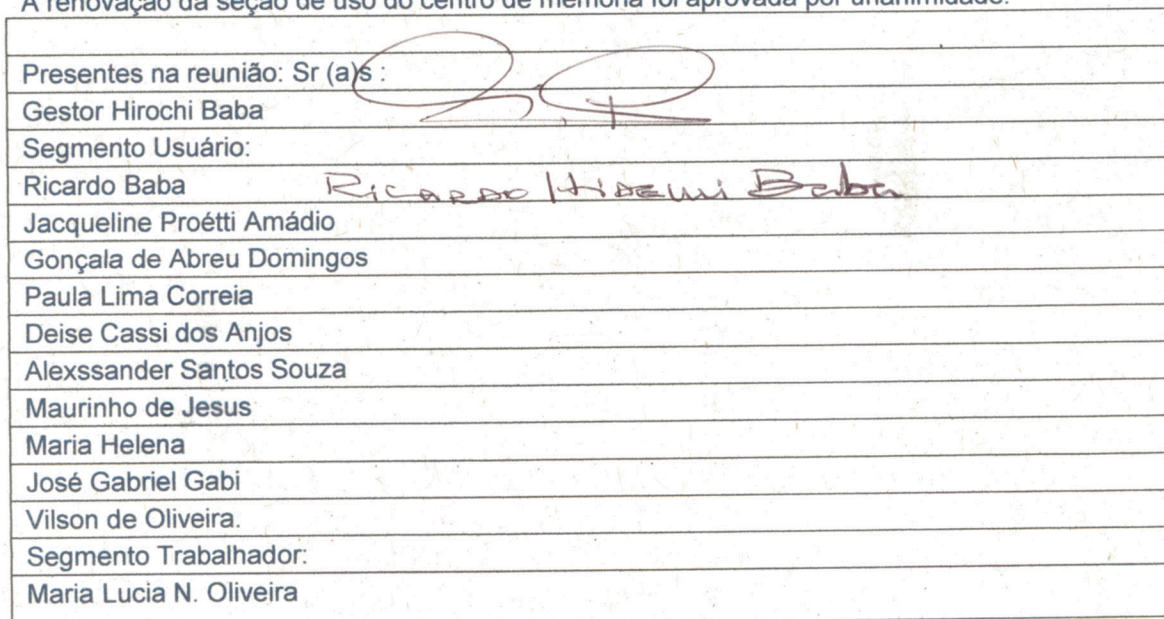 A renovação da seção de uso do centro de memória foi aprovada por unanimidade.
Presentes na reunião: Sr (a)s :
Gestor Hirochi Baba
Segmento Usuário:
Ricardo Baba Ricardo Hidemi Baba
Jacqueline Proétti Amádio
Gonçala de Abreu Domingos
Paula Lima Correia
Deise Cassi dos Anjos
Alexssander Santos Souza
Maurinho de Jesus
Maria Helena
José Gabriel Gabi
Vilson de Oliveira.
Segmento Trabalhador:
Maria Lucia N. Oliveira